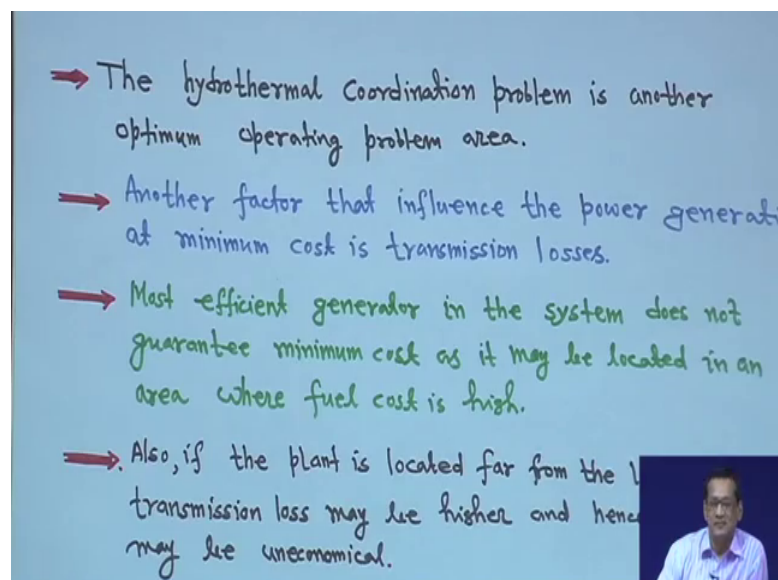 The hydrothermal coordination problem is another
optimum operating problem area.
Another factor that influence the power generati
at minimum cost is transmission losses.
Most efficient generator in the system does not
guarantee minimum cost as it may be located in an
area where fuel cost is high.
Also, if the plant is located far from the
transmission loss may be higher and henc
may be uneconomical.